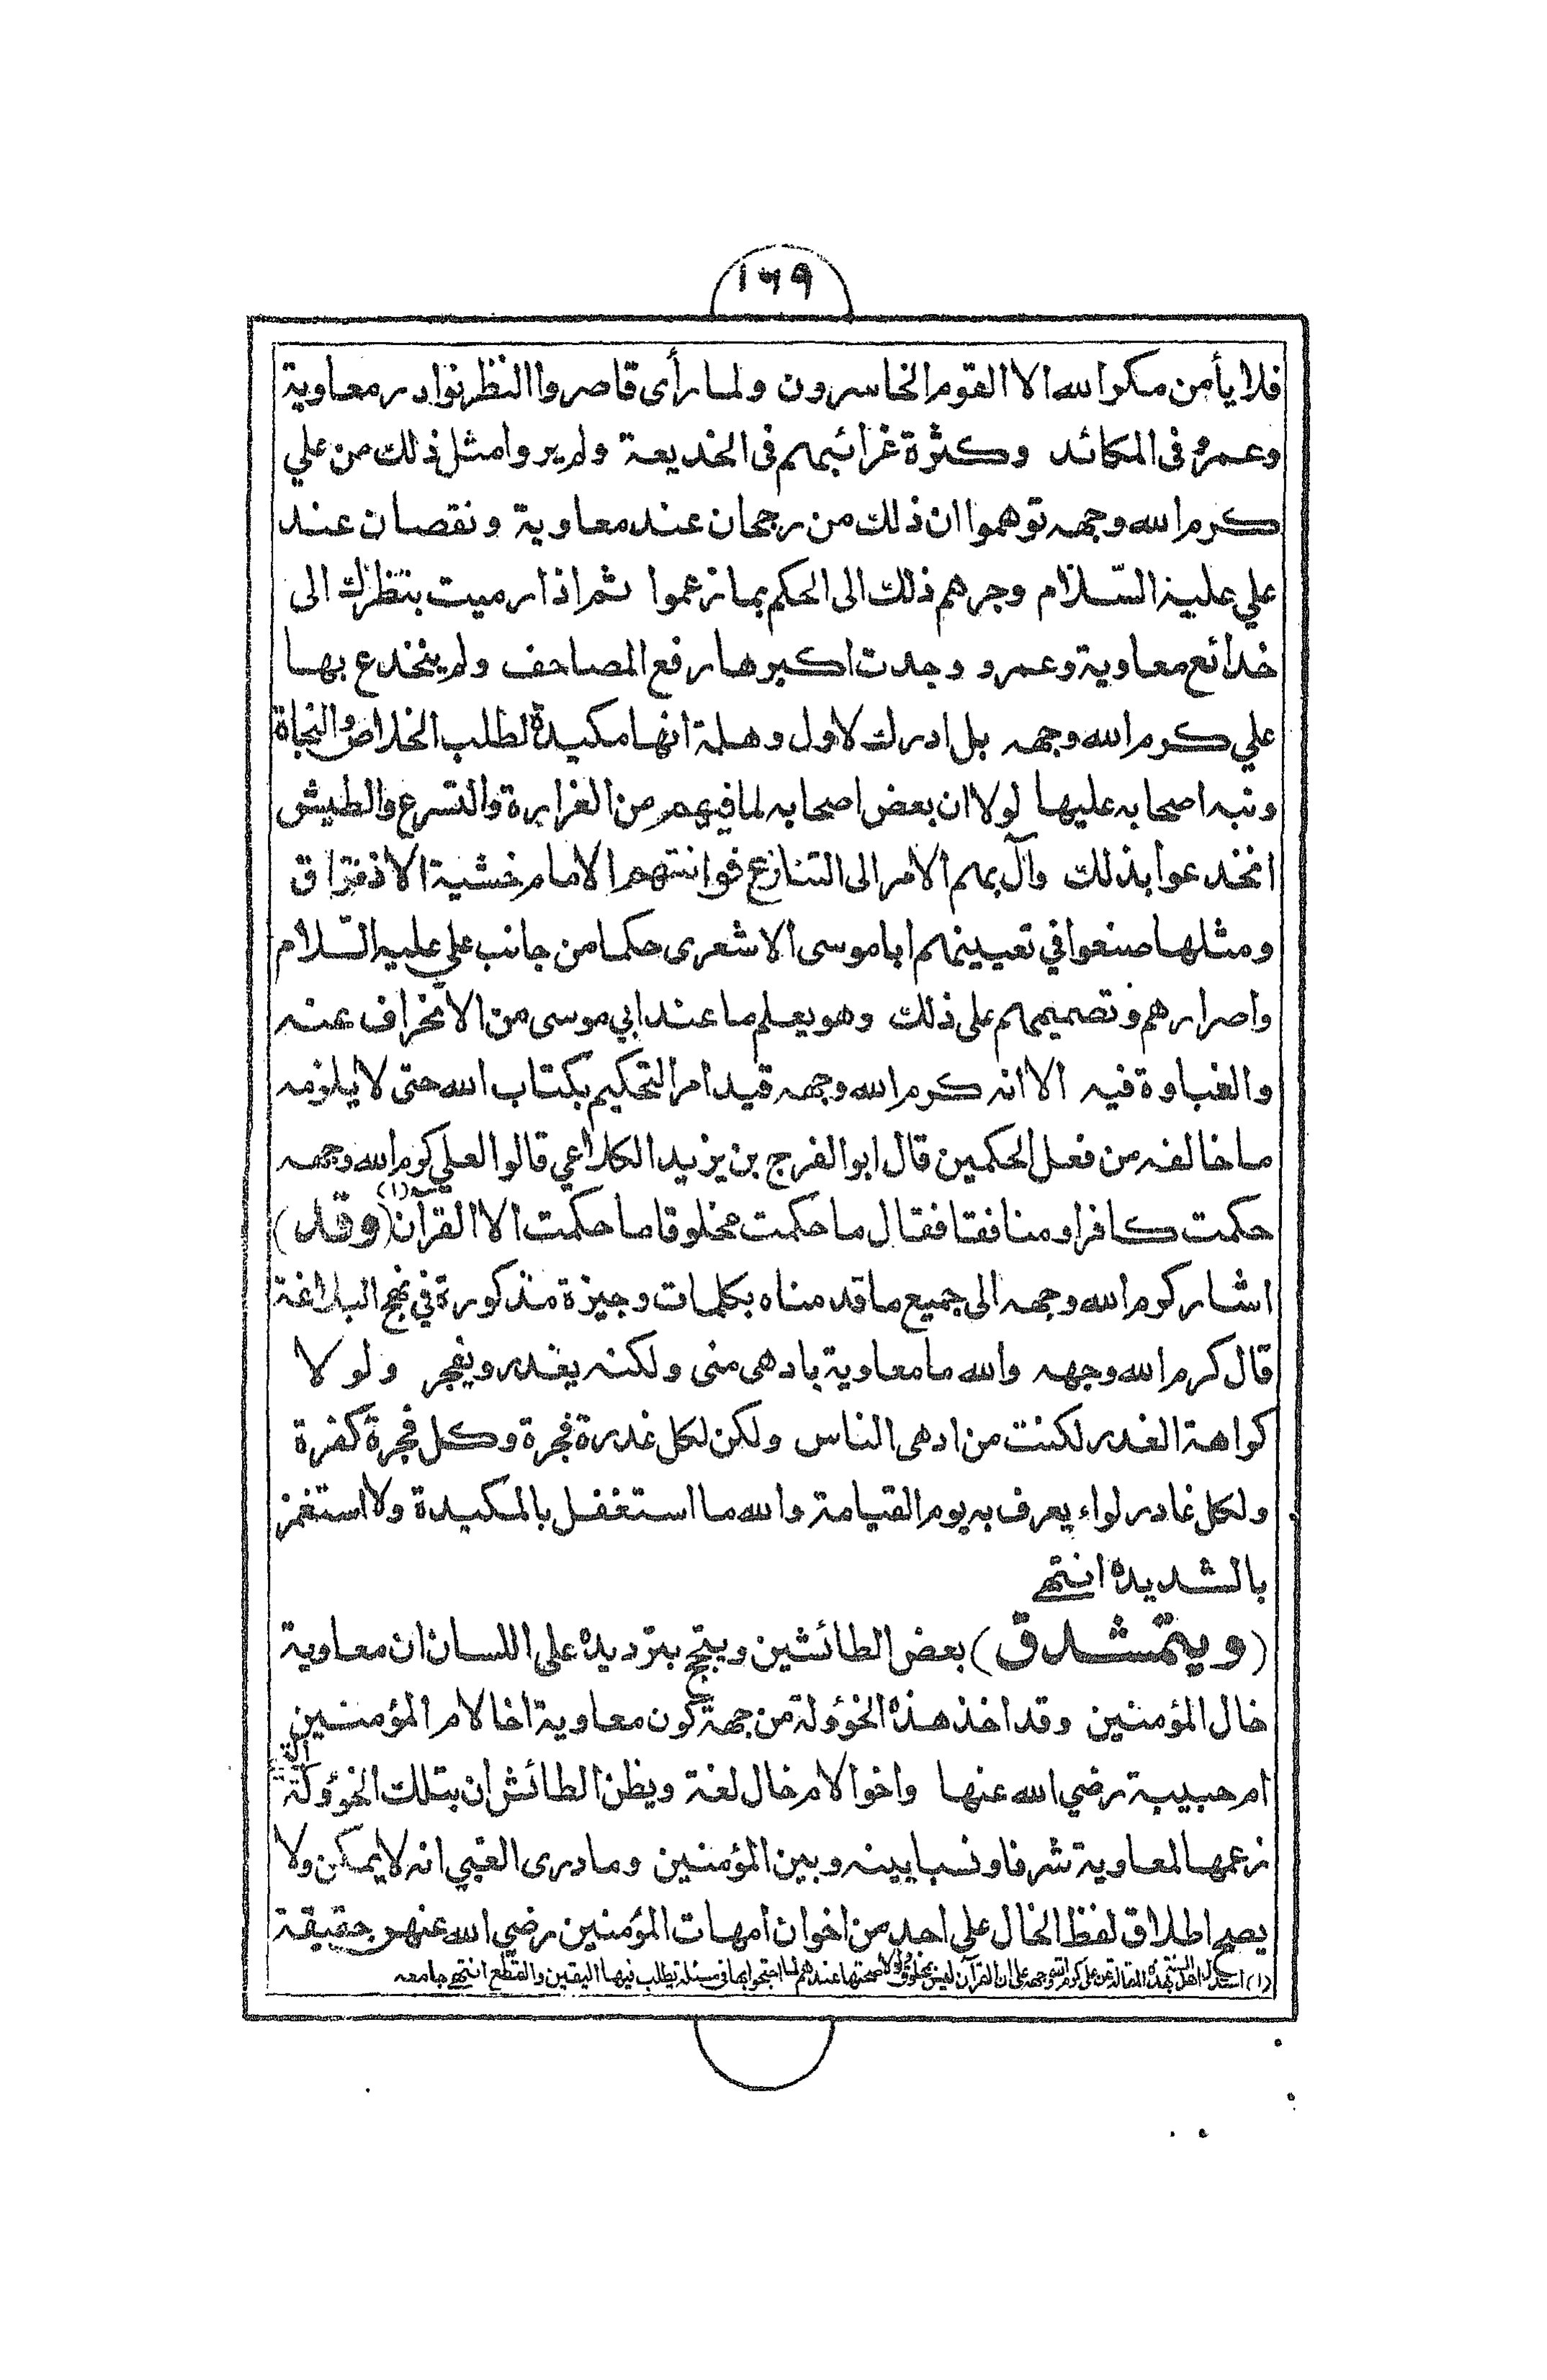 ١٦٩
فلا يأمن مكر الله الا القوم الخاسرون ولما رأى قاصروا النظر نوادر معاوية
وعمرو فى المكائد وكثرة غرائبهم فى الخديعة ولم يروا مثل ذلك من علي
كرم الله وجهه توهموا ان ذلك من رجحان عند معاوية ونقصان عند
علي عليه السّلام وجرهم ذلك الى الحكم بما زعموا ثم اذا رميت بنظرك الى
خدائع معاوية وعمرو وجدت اكبرها رفع المصاحف ولم ينخدع بها
علي كرم الله وجهه بل ادرك لاول وهلة انها مكيدة لطلب الخلاص والنجاة
ونبه اصحابه عليها لولا ان بعض اصحابه لما فيهم من الغرارة والتسرع والطيش
انخدعوا بذلك وآل بهم الامر الى التنازع فوانتهم الامام خشية الافتراق
ومثلها صنعوا في تعيينهم ابا موسى الاشعرى حكما من جانب علي عليه السّلام
واصرارهم وتصميمهم على ذلك وهو يعلم ما عند ابي موسى من الانحراف عنه
والغباوة فيه الا انه كرم الله وجهه قيد امر التحكيم بكتاب الله حتى لا يلزمه
ما خالفه من فعل الحكمين قال ابو الفرج بن يزيد الكلاعي قالوا لعلي كرم الله وجهه
حكمت كافرا ومنافقا فقال ما حكمت مخلوقا ما حكمت الا القرآن (١) (وقد)
اشار كرم الله وجهه الى جميع ما قدمناه بكلمات وجيزة مذكورة في نهج البلاغة
قال كرم الله وجهه والله ما معاوية بادهى منى ولكنه يغدر ويفجر ولولا
كراهة الغدر لكنت من ادهى الناس ولكن لكل غدرة فجرة وكل فجرة كفرة
ولكل غادر لواء يعرف به يوم القيامة والله ما استغفل بالمكيدة ولا استغمز
بالشديدة انتهى
(ويتمشدق) بعض الطائشين ويتبجح بترديده على اللسان ان معاوية
خال المؤمنين وقد اخذ هذه الخؤولة من جهة كون معاوية اخا لام المؤمنين
ام حبيبة رضي الله عنها واخو الام خال لغة ويظن الطائش ان بتلك الخؤولة التى
زعمها لمعاوية شرفا ونسبا بينه وبين المؤمنين وما درى الغبي انه لا يمكن ولا
يصح اطلاق لفظ الخال على احد من اخوان امهات المؤمنين رضي الله عنهن حقيقة
(١) استدل اهل السنة بهذه المقالة عن علي كرم الله وجهه على ان القرآن ليس بمخلوق ولولا صحتها عندهم لما احتجوا بها في مسئلة يطلب فيها اليقين والقطع انتهى جامعه